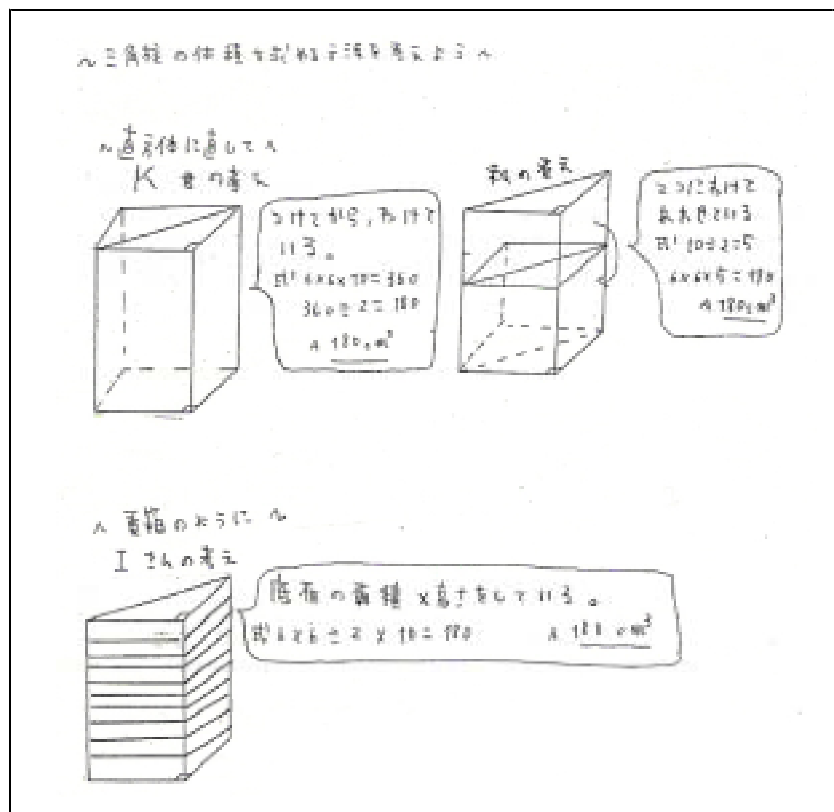 ~三角柱の体積を求める方法を考えよう~
~直方体に直して~
K君の考え
つけてから、わけて
いる。
式 6×6×10=360
360÷2=180
A 180cm³
私の考え
2つにわけて
あわせている
式 10÷2=5
6×6×5=180
A 180cm³
のように~
Iさんの考え
底面の面積×高さをしている。
式 6×6÷2×10=180
A 180cm³